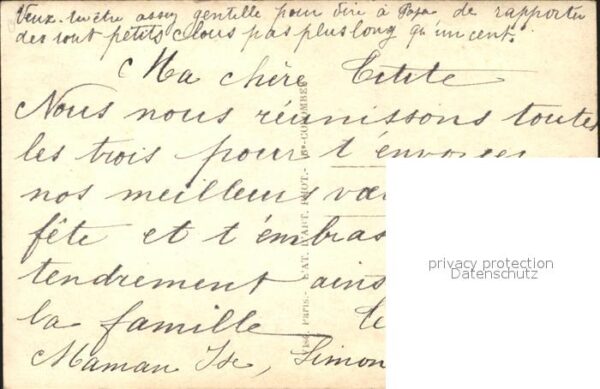 Veux-tu être assez gentille pour dire à Papa de rapporter
des tout petits clous pas plus long qu'un cent.
Ma chère Titite
Nous nous réunissons toutes
les trois pour t'envoyer
nos meilleurs vœ
fête et t'embras
tendrement ains
la famille
Maman Simon
PARIS. - L'AT. D'ART. PHOT. - Bs-COLOMBES
privacy protection
Datenschutz